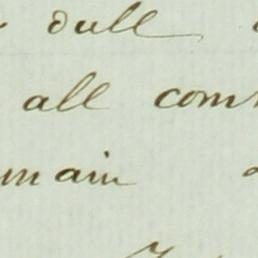 dull
all com
main